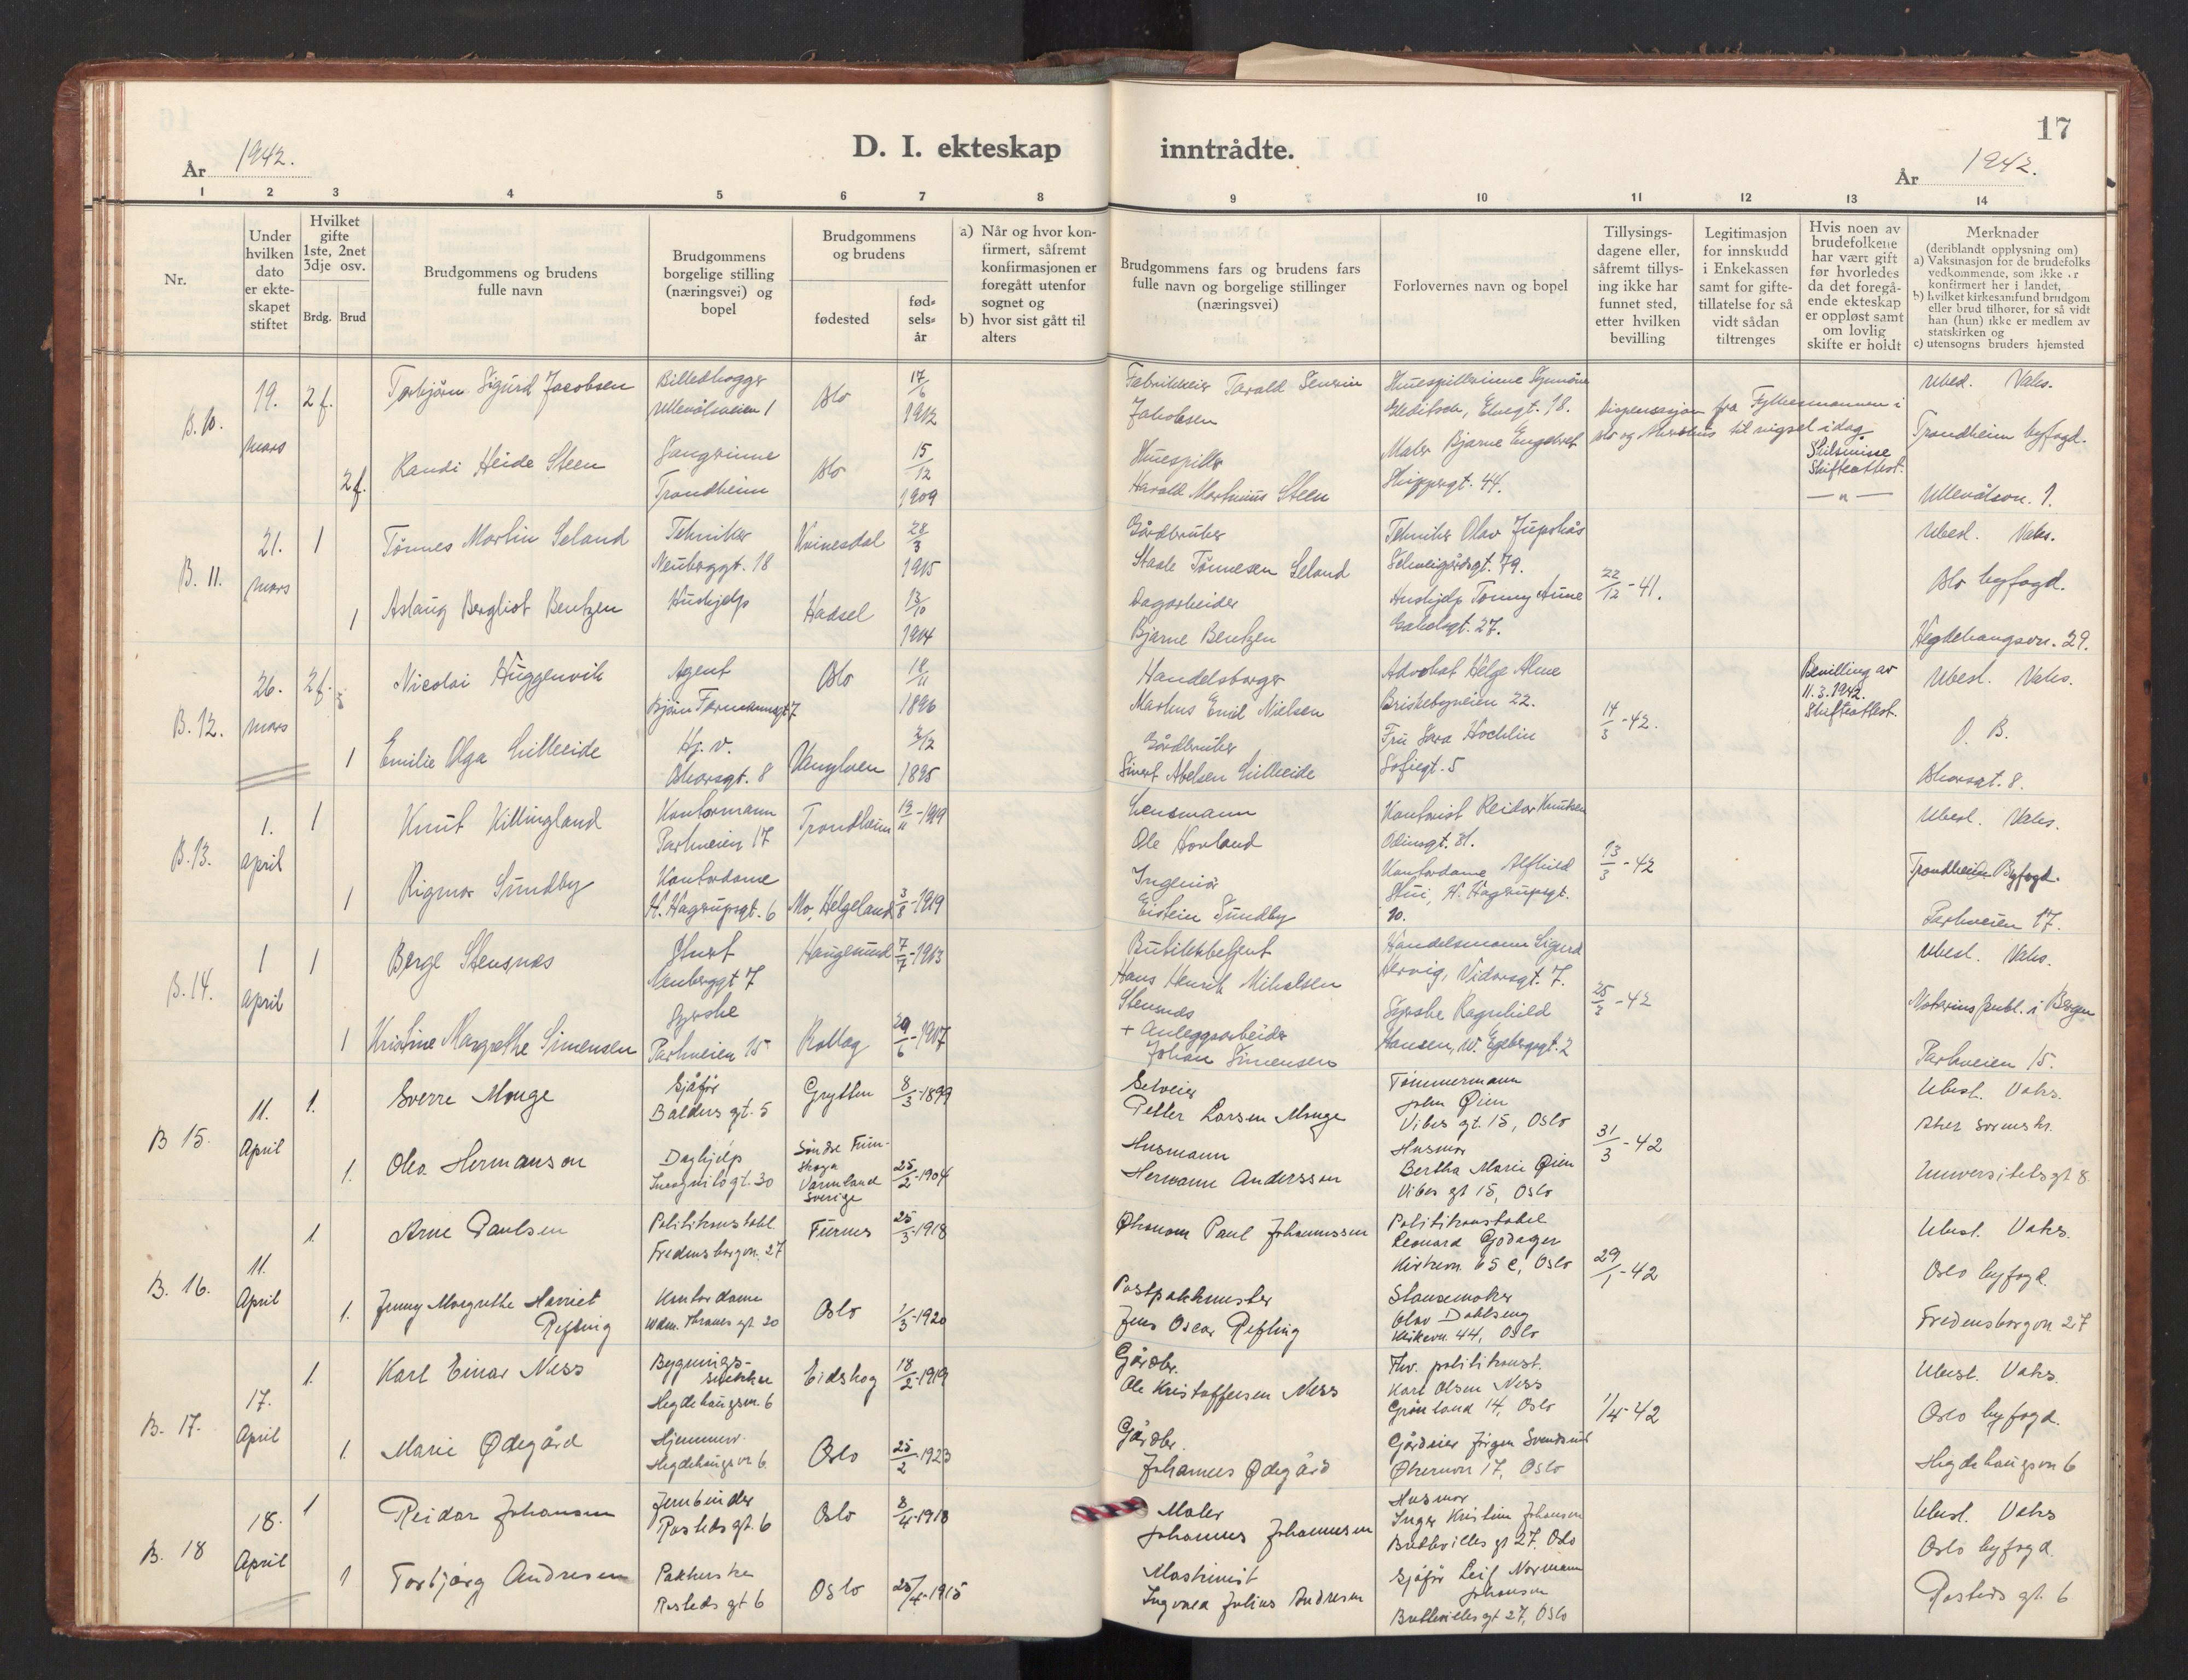 17
D. I. ekteskap inntrådte.
År 1942.
År 1942.
1 2 3 4 5 6 7 8 9 10 11 12 13 14
Nr.
Under hvilken dato er ekte- skapet stiftet
Hvilket gifte 1ste, 2net 3dje osv.
Brdg. Brud
Brudgommens og brudens fulle navn
Brudgommens borgelige stilling (næringsvei) og bopel
Brudgommens og brudens
fødested
fød- sels- år
a) Når og hvor kon- firmert, såfremt konfirmasjonen er foregått utenfor sognet og
b) hvor sist gått til alters
Brudgommens fars og brudens fars fulle navn og borgelige stillinger (næringsvei)
Forlovernes navn og bopel
Tillysings- dagene eller, såfremt tillys- ing ikke har funnet sted, etter hvilken bevilling
Legitimasjon for innskudd i Enkekassen samt for gifte- tillatelse for så vidt sådan tiltrenges
Hvis noen av brudefolkene har vært gift før hvorledes da det foregå- ende ekteskap er oppløst samt om lovlig skifte er holdt
Merknader (deriblandt opplysning om)
a) Vaksinasjon for de brudefolks vedkommende, som ikke er konfirmert her i landet,
b) hvilket kirkesamfund brudgom eller brud tilhører, for så vidt han (hun) ikke er medlem av statskirken og
c) utensogns bruders hjemsted
B. 10.
19. mars
2 f.
Torbjörn Sigurd Jacobsen
Billedhogger
Ullevålsveien 1
Oslo
17/6 1912
Fabrikkeier Tarald
Jakobsen
Skuespillerinne Synnöve
Gleditsch, Elvegt. 18.
Dispensasjon fra Fylkesmannen i
Oslo og Akershus til vigsel idag
Ubesl. Vaks.
Trondheim byfogd.
2 f.
Randi Heide Steen
Sangerinne
Trondheim
Oslo
15/12 1909
Skuespiller
Harald Martinius Steen
Maler Bjarne Engebret
Skippergt. 44.
Skilsmisse
Skifteattest.
— " —
Ullevålsvn. 1.
B. 11.
21. mars
1
Tönnes Martin Seland
Tekniker
Neuberggt. 18
Kvinesdal
28/3 1915
Gårdbruker
Staale Tönnesen Seland
Tekniker Olav
Schweigårdsgt. 79.
22/12 -41.
Ubesl. Vaks.
Oslo byfogd.
1
Aslaug Bergliot Bentzen
Hushjelp
Hadsel
13/10 1904
Dagarbeider
Bjarne Bentzen
Hushjelp Tonny Aune
Gabelsgt. 27.
Hegdehaugsvn. 29.
B. 12.
26. mars
2 f.
Nicolai Huggenvik
Agent
Björn Farmannsgt 7
Oslo
18/11 1896
Handelsborger
Markus Emil Nielsen
Advokat Helge Alme
Briskebyveien 22.
14/3 -42.
Bevilling av
11.3.1942.
Skifteattest.
Ubesl. Vaks.
O. B.
1
Emilie Olga Lilleeide
Hj. v.
Oskarsgt. 8
Vanylven
1895
Gårdbruker
Sivert Abelsen Lilleeide
Fru Sara Höchlin
Sofiegt. 5
Oskarsgt. 8.
B. 13.
1. april
1
Knut Killingland
Kontormann
Parkveien 17
Trondheim
13/11 -1919
Lensmann
Ole Hovland
Kontorist Reidar Knutsen
Odinsgt. 31.
13/3 -42
Ubesl. Vaks.
Trondheim Byfogd.
1
Rigmor Sundby
Kontordame
H. Hagerupsgt. 6
Mo, Helgeland
3/8 -1919
Ingeniör
Eistein Sundby
Kontordame Alfhild
H. Hagerupsgt.
10.
Parkveien 17.
B. 14.
1 april
1
Berge Stensnes
Neuberggt 7
Haugesund
7/7 -1913
Butikkbetjent
Hans Henrik Mikalsen
Stensnes
Handelsmann Sigurd
Hervig, Vidarsgt. 7.
25/3 -42
Ubesl. Vaks.
Notarius publ. i Bergen
1
Kristine Margrethe Simensen
Syerske
Parkveien 15
Rollag
29/6 -1907
+ Anleggsarbeider
Johan Simensen
Syerske Ragnhild
Hansen, W. Egebergsgt. 2
Parkveien 15.
B 15.
11. April
1.
Sverre Monge
Sjåför
Balders gt. 5
Grytten
8/3 -1899
Selveier
Petter Larsen Monge
Tömmermann
John Øien
Vibes gt. 15, Oslo
31/3 -42
Ubesl. Vaks.
Aker sorenskr.
1.
Olea Hermanson
Daghjelp
Incognitogt. 30
Söndre Finn-
skoga
Värmland
Sverige
25/2 -1904
Husmann
Hermann Andersson
Husmor
Bertha Marie Øien
Vibes gt 15, Oslo
Universitetsgt 8.
B. 16.
11. April
1.
Arne Paulsen
Politikonstabl.
Fredensborgvn. 27
Furnes
25/3 -1918
Økonom Paul Johannssen
Politikonstabel
Leonard Godager
Kirkevn. 65 c, Oslo
29/1 -42
Ubesl. Vaks.
Oslo byfogd.
1.
Jenny Margrethe Harriet
Refling
Kontordame
Wdm. Thranes gt. 20
Oslo
1/3 -1920
Postpakkmester
Jens Oscar Refling
Stansemaker
Olav Dahlseng
Kirkevn 44, Oslo
Fredensborgvn 27
B. 17.
17. April
1.
Karl Einar Ness
Bygnings-
snekker
Hegdehaugsvn. 6
Eidskog
18/2 -1919
Gårdbr.
Ole Kristoffersen Ness
Fhv. politikonst.
Karl Olsen Ness
Grönland 14, Oslo
1/4 -42
Ubesl. Vaks.
Oslo byfogd.
1.
Marie Ødegård
Hjemmev.
Hegdehaugsvn 6
Oslo
25/2 -1923
Gårdbr.
Johannes Ødegård
Gårdeier Jörgen Svendsrud
Økernvn 17, Oslo
Hegdehaugsvn 6
B. 18
18. April
1
Reidar Johansen
Jernbinder
Rosteds gt. 6
Oslo
8/4 -1918
Maler
Johannes Johannesen
Husmor
Inger Kristine Johansen
Bretteville gt 27, Oslo
Ubesl. Vaks
Oslo byfogd.
1
Torbjørg Andresen
Pakkerske
Rosteds gt 6
Oslo
25/4 -1915
Maskinist
Ingvald Julius Andresen
Sjåför Leif Normann
Johansen
Brettevilles gt 27, Oslo
Rosteds gt. 6